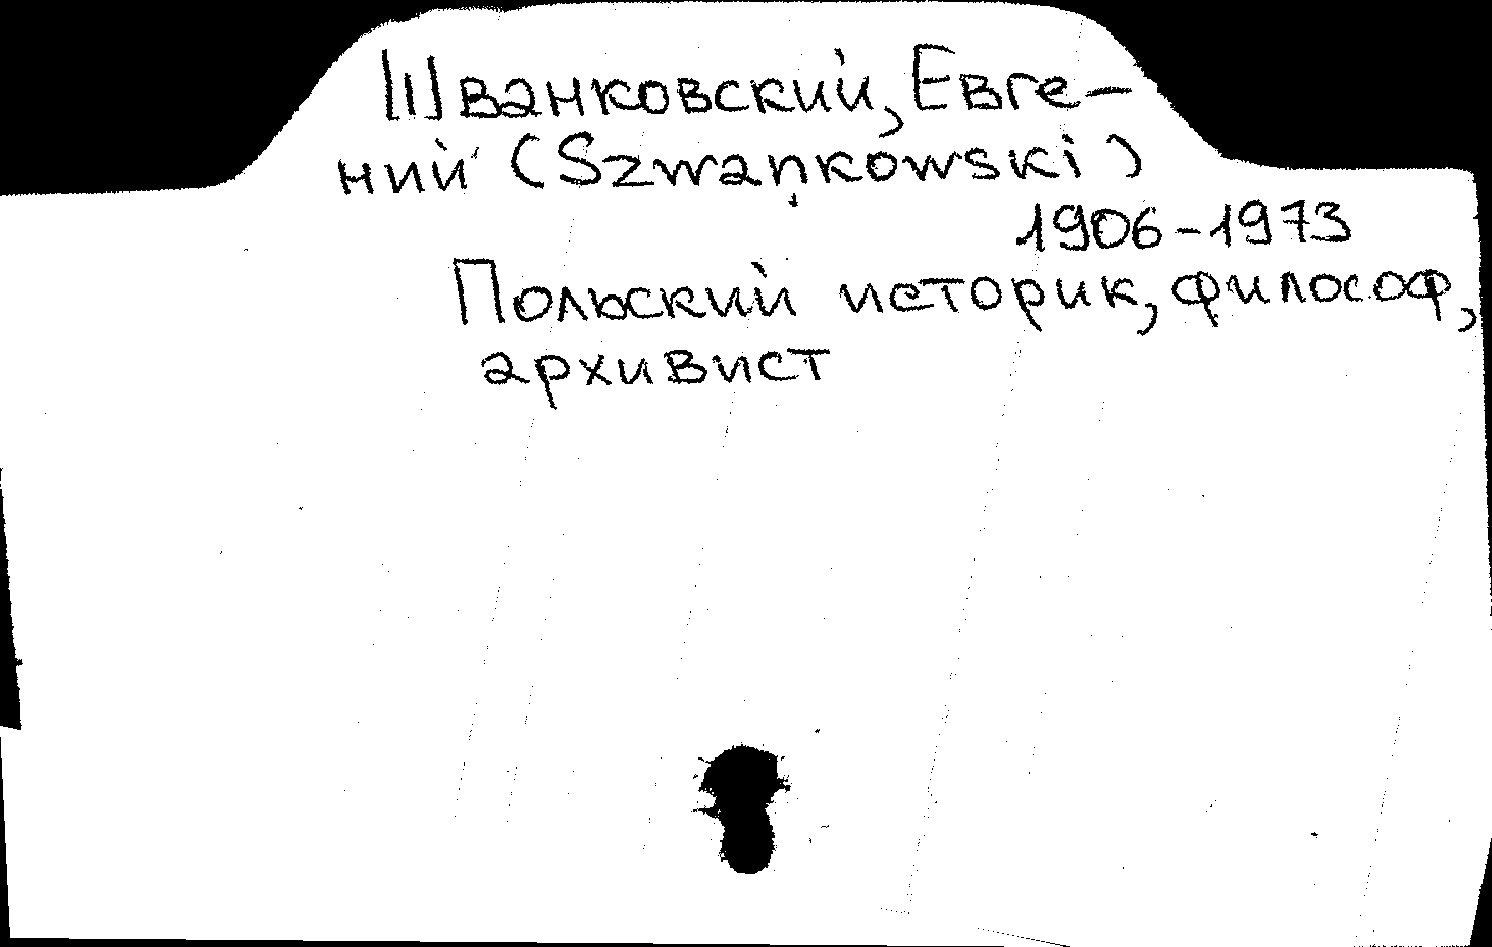 Шванковский, Евге-
ний (Szwankowski)
1906-1973
Польский историк, философ,
архивист